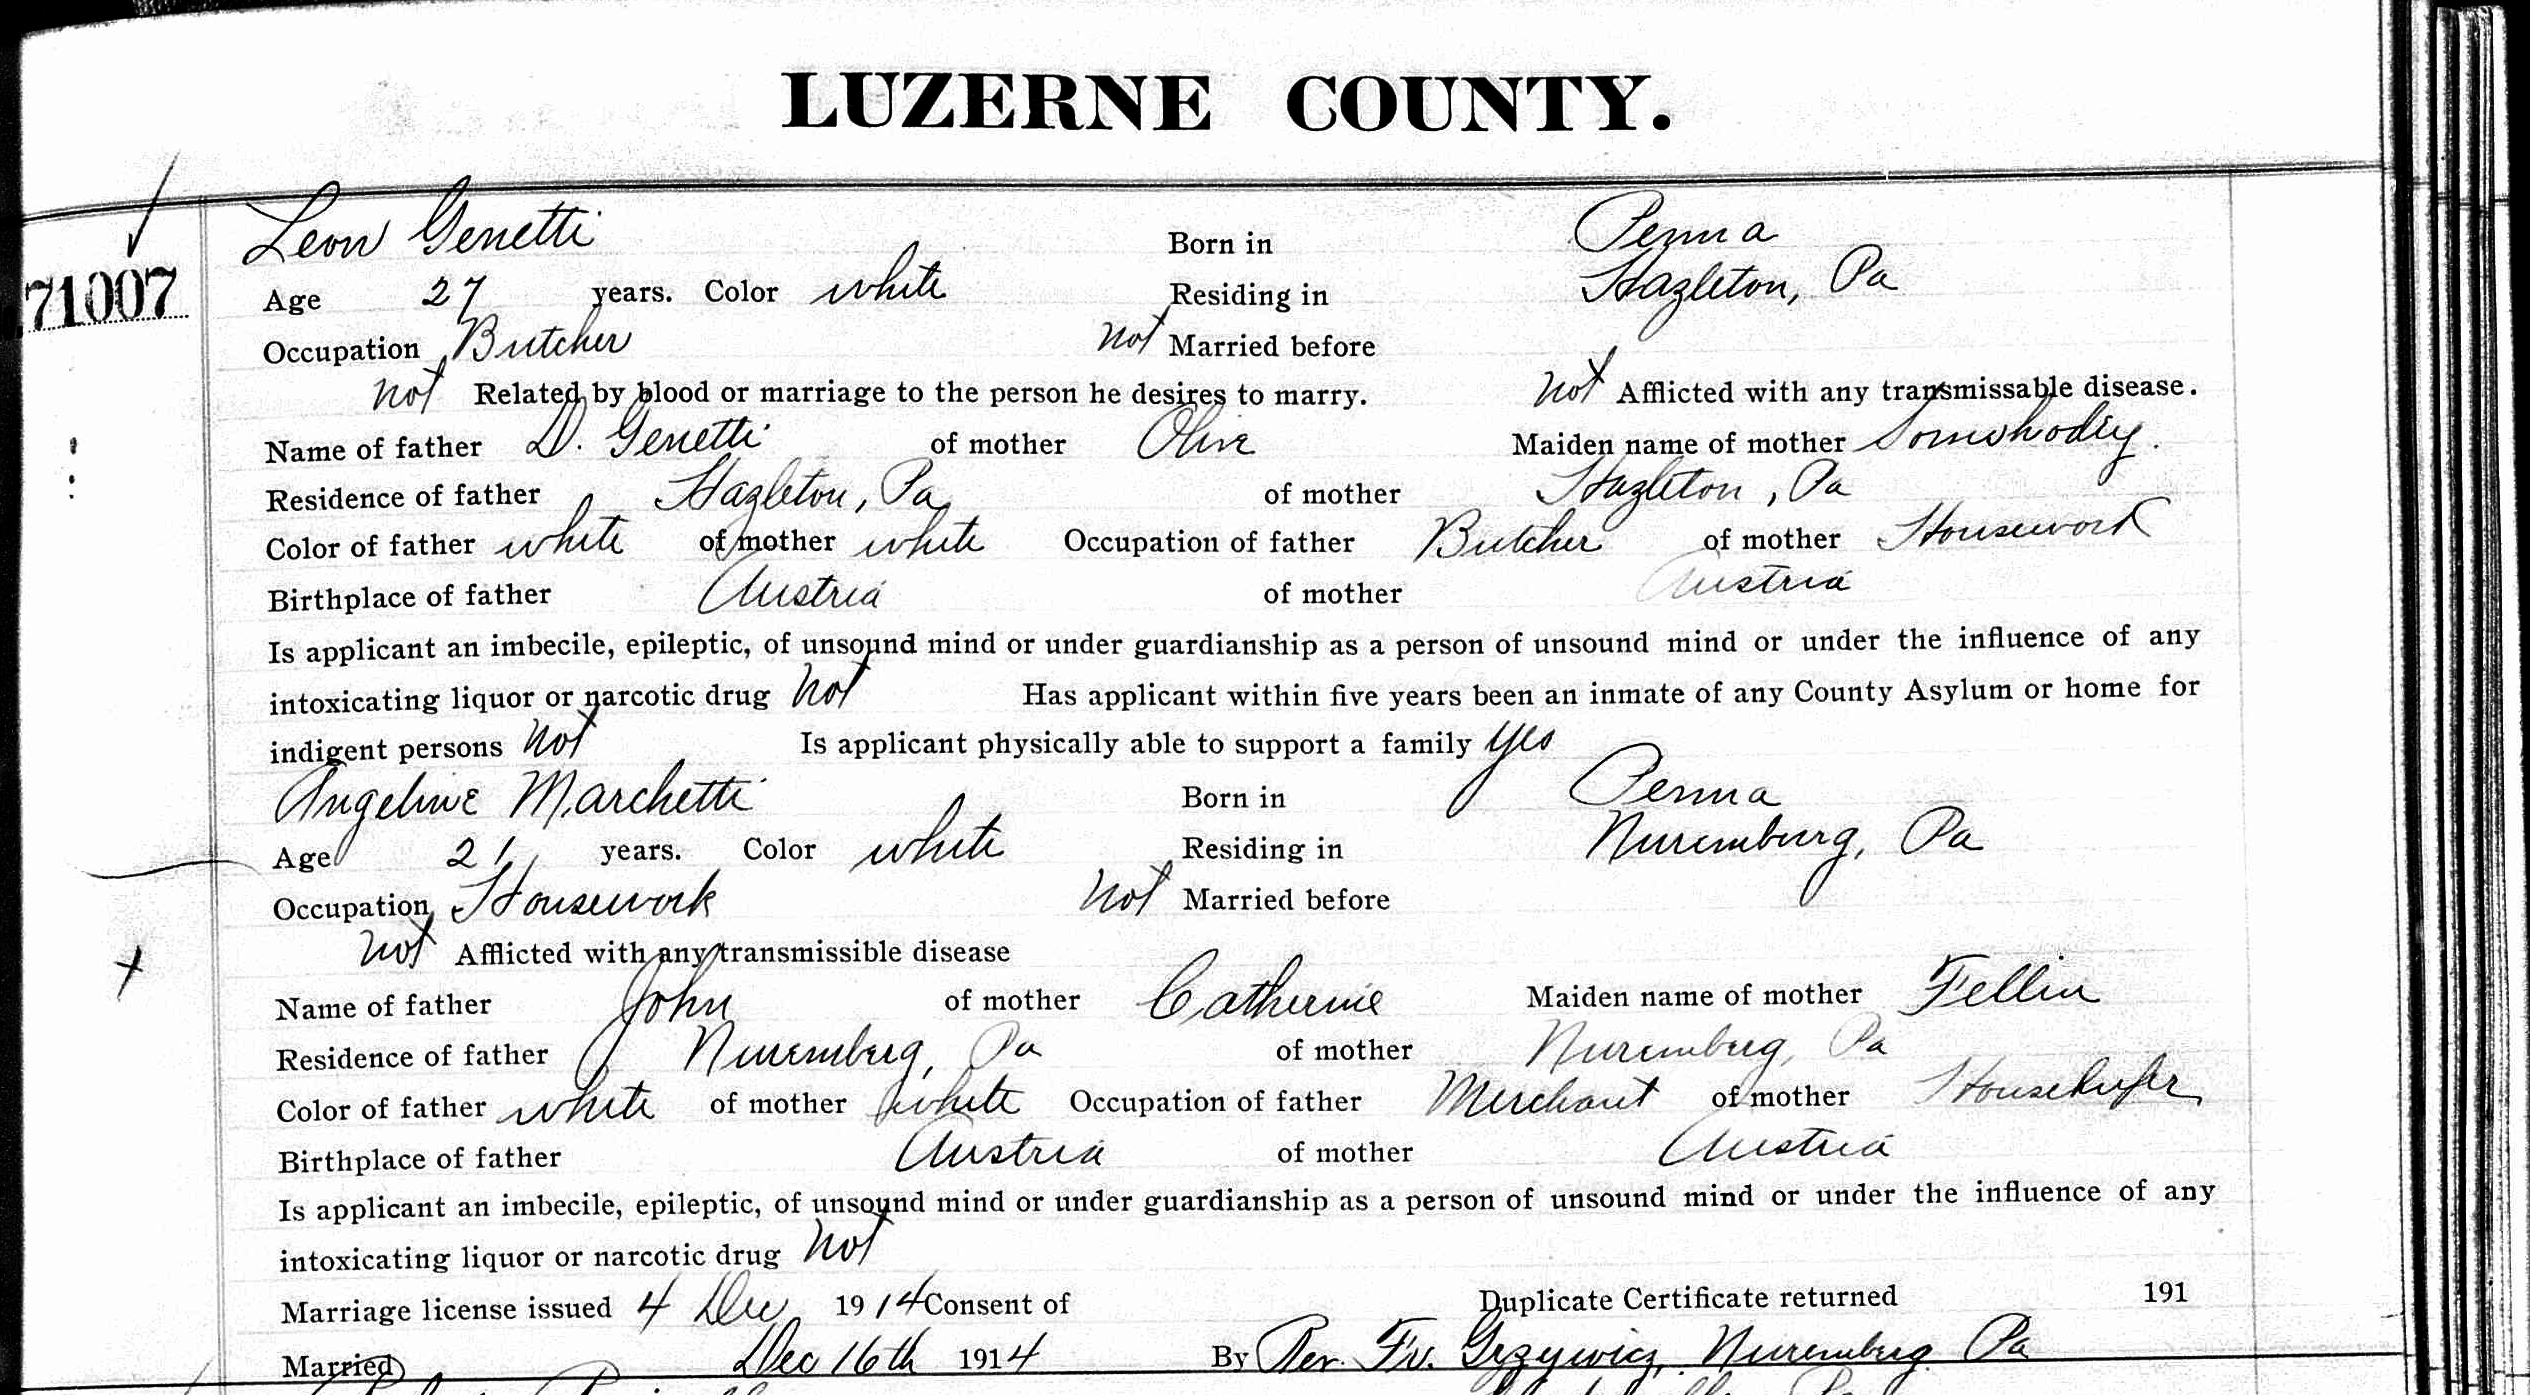 LUZERNE COUNTY.
Leon Genetti Born in Penna
71007
Age 27 years. Color white Residing in Hazleton, Pa
Occupation Butcher not Married before
not Related by blood or marriage to the person he desires to marry. not Afflicted with any transmissable disease.
Name of father D. Genetti of mother Olive Maiden name of mother
Residence of father Hazleton, Pa of mother Hazleton, Pa
Color of father white of mother white Occupation of father Butcher of mother Housework
Birthplace of father Austria of mother Austria
Is applicant an imbecile, epileptic, of unsound mind or under guardianship as a person of unsound mind or under the influence of any
intoxicating liquor or narcotic drug not Has applicant within five years been an inmate of any County Asylum or home for
indigent persons not Is applicant physically able to support a family yes
Angeline Marchetti Born in Penna
Age 21 years. Color white Residing in Nuremburg, Pa
Occupation Housework not Married before
not Afflicted with any transmissible disease
Name of father John of mother Catherine Maiden name of mother Fellin
Residence of father Nuremberg, Pa of mother Nuremberg, Pa
Color of father white of mother white Occupation of father Merchant of mother Housekeeper
Birthplace of father Austria of mother Austria
Is applicant an imbecile, epileptic, of unsound mind or under guardianship as a person of unsound mind or under the influence of any
intoxicating liquor or narcotic drug not
Marriage license issued 4 Dec 1914 Consent of Duplicate Certificate returned 191
Married Dec 16th 1914 By Rev. Fr. Grzywicz, Nuremberg Pa